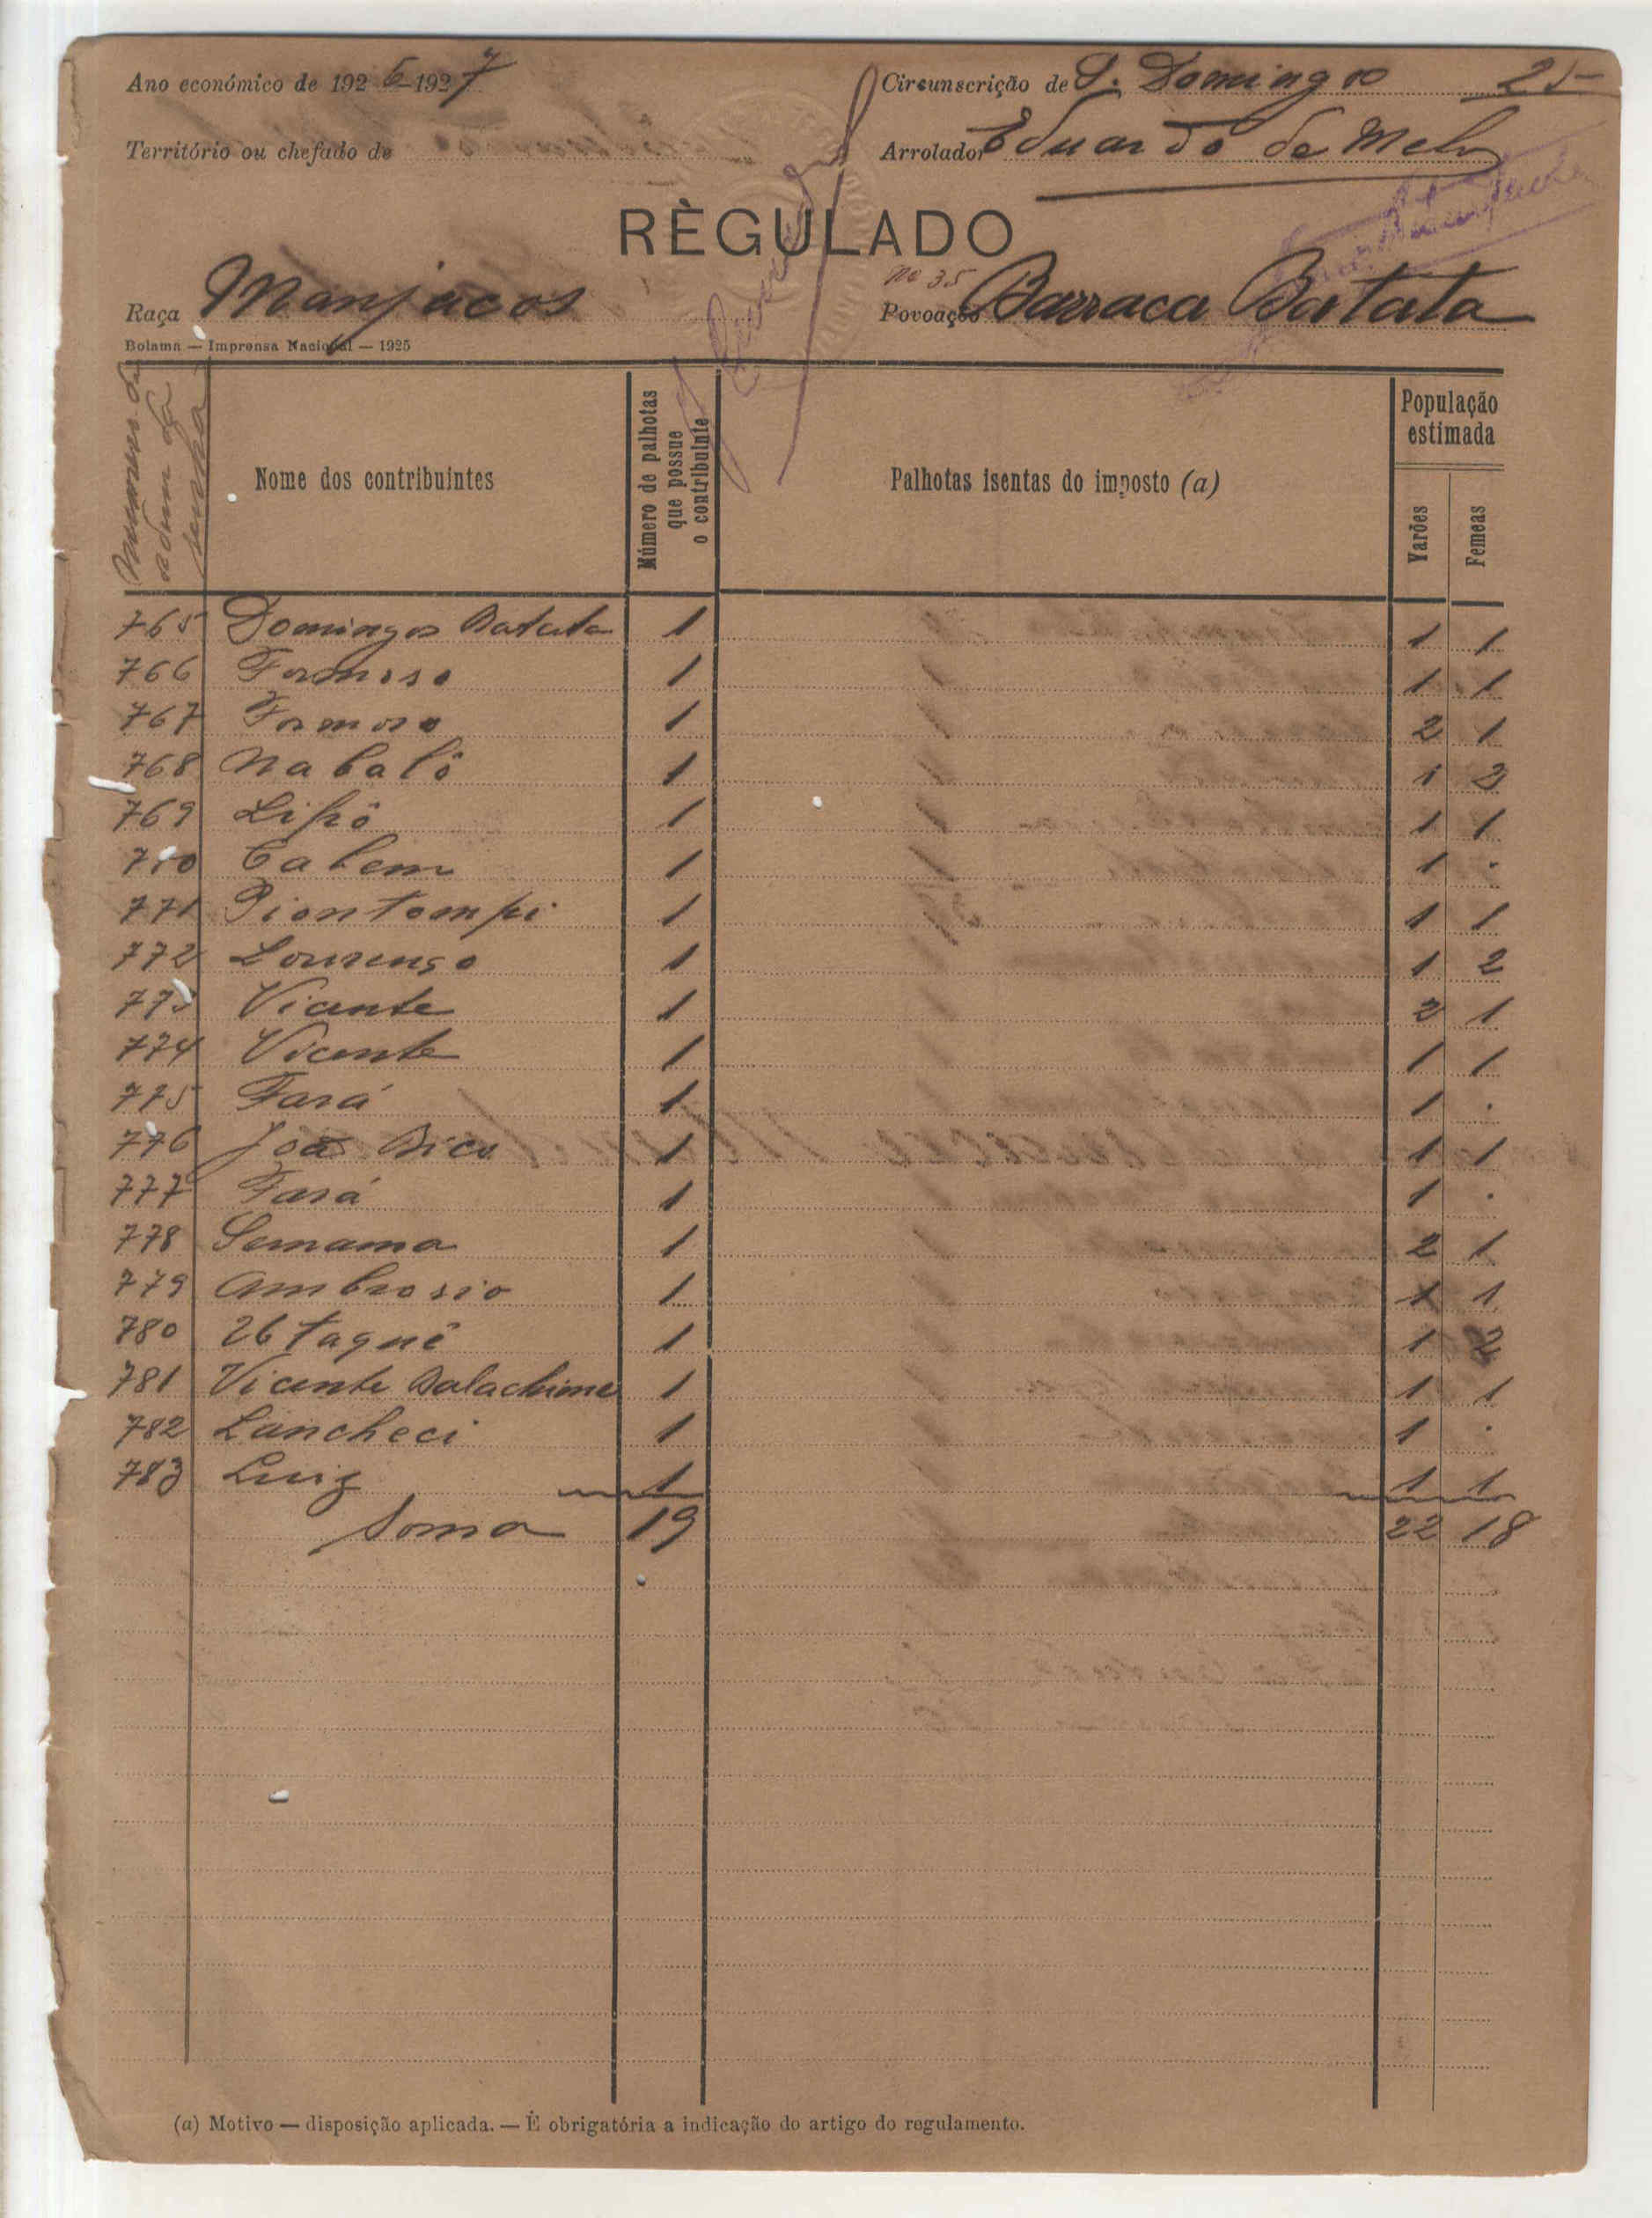 Ano económico de 1926-1927
Circunscrição de S. Domingos 25
Território ou chefado de
Arrolador Eduardo de Melo
RÈGULADO
Raça Manjacos
Nº 35
Povoação Barraca Batata
Bolama — Imprensa Nacional — 1925
Nome dos contribuintes
Número de palhotas que possue o contribuinte
Palhotas isentas do imposto (a)
População estimada
Varões
Femeas
765 Domingos Batata 1 1 1
766 Formoso 1 1 1
767 Formoso 1 2 1
768 Nabalô 1 1 2
769 Lipô 1 1 1
770 Cabem 1 1 .
771 Piontompi 1 1 1
772 Lourenço 1 1 2
773 Vicente 1 2 1
774 Vicente 1 1 1
775 Fará 1 1 .
776 João Bico 1 1 1
777 Fará 1 1 .
778 Semama 1 2 1
779 Ambrosio 1 1 1
780 1 1 2
781 Vicente Balachime 1 1 1
782 Lancheci 1 1 .
783 Luiz 1 1 1
Soma 19 22 18
(a) Motivo — disposição aplicada. — É obrigatória a indicação do artigo do regulamento.